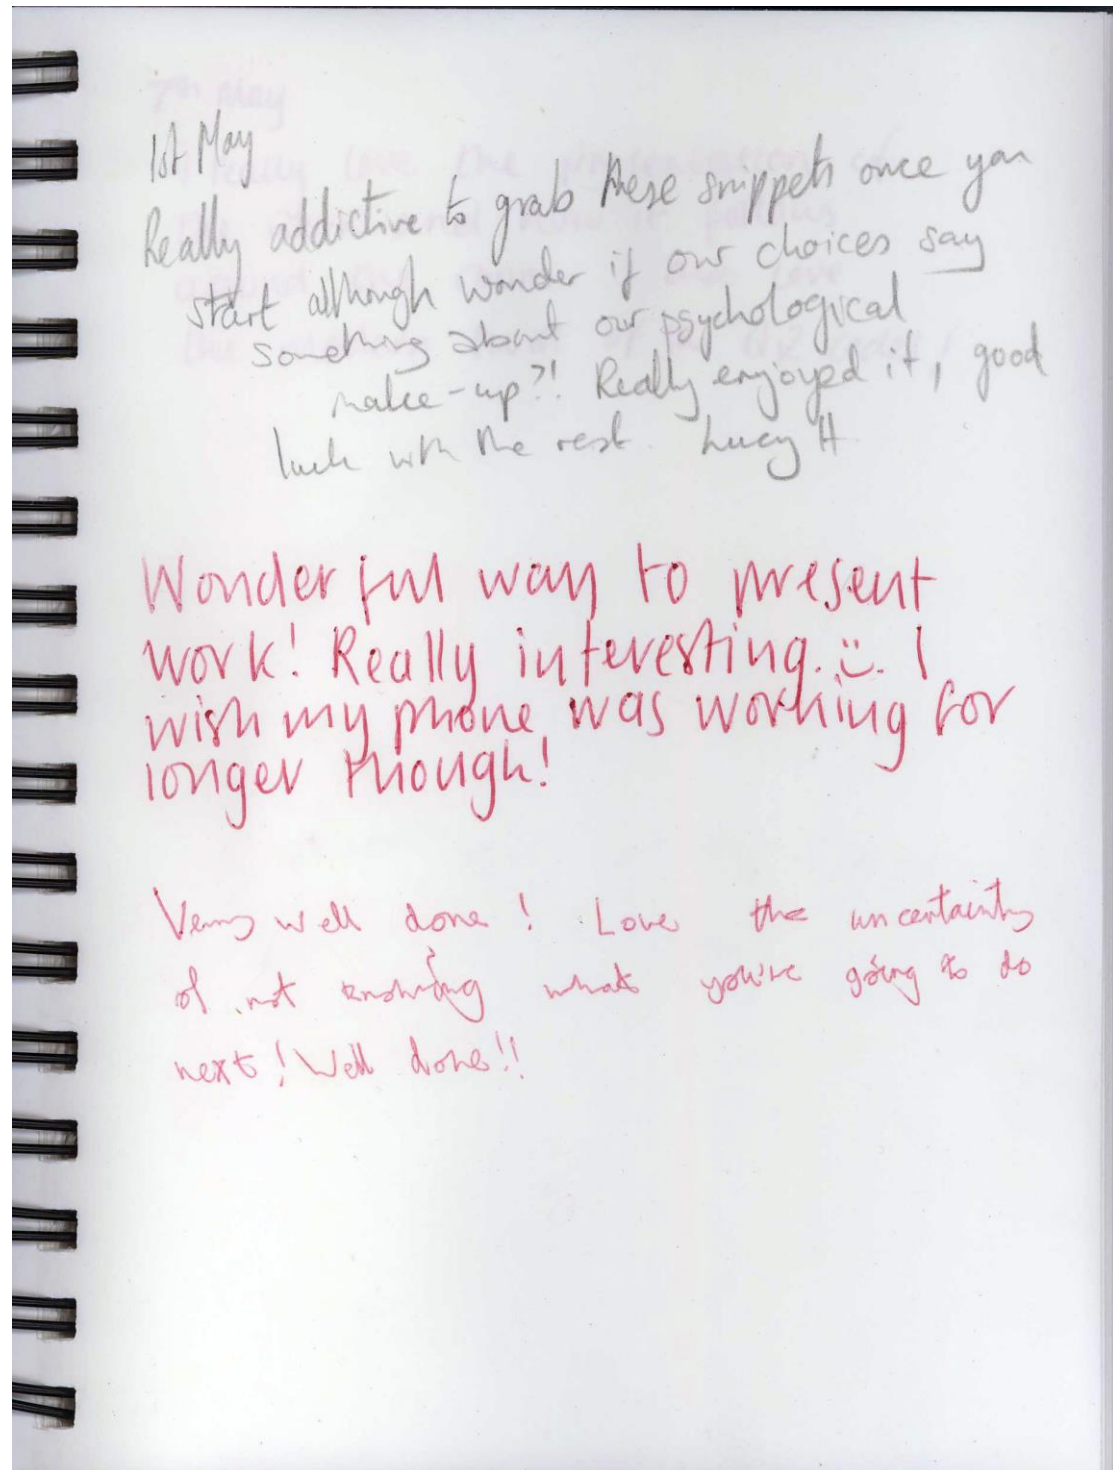 1st May
Really addictive to grab these snippets once you
start although wonder if our choices say
something about our psychological
make-up?! Really enjoyed it, good
luck with the rest. Lucy H
Wonderful way to present
work! Really interesting. :) I
wish my phone was working for
longer though!
Very well done! Love the uncertainty
of not knowing what you're going to do
next! Well done!!
7th May
really love the